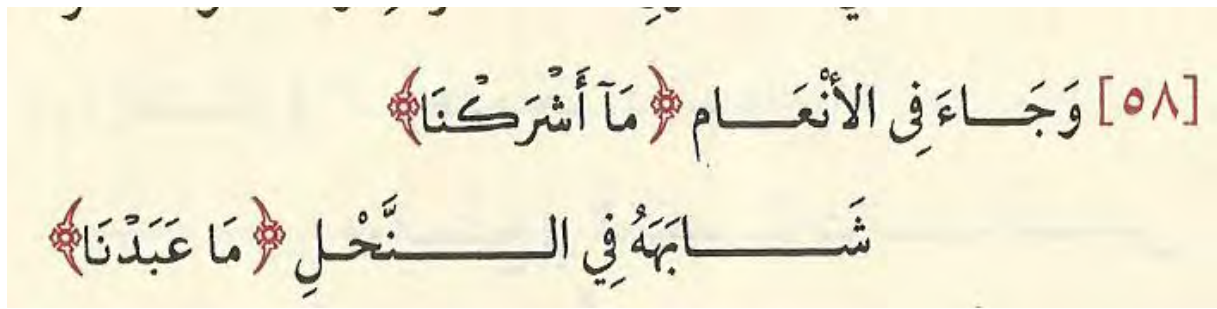 [٥٨] وَجَـــاءَ فِى الأَنْعَـــام ﴿مَآ أَشْرَكْنَا﴾
شَـــابَهَهُ فِي الـــنَّحْلِ ﴿مَا عَبَدْنَا﴾